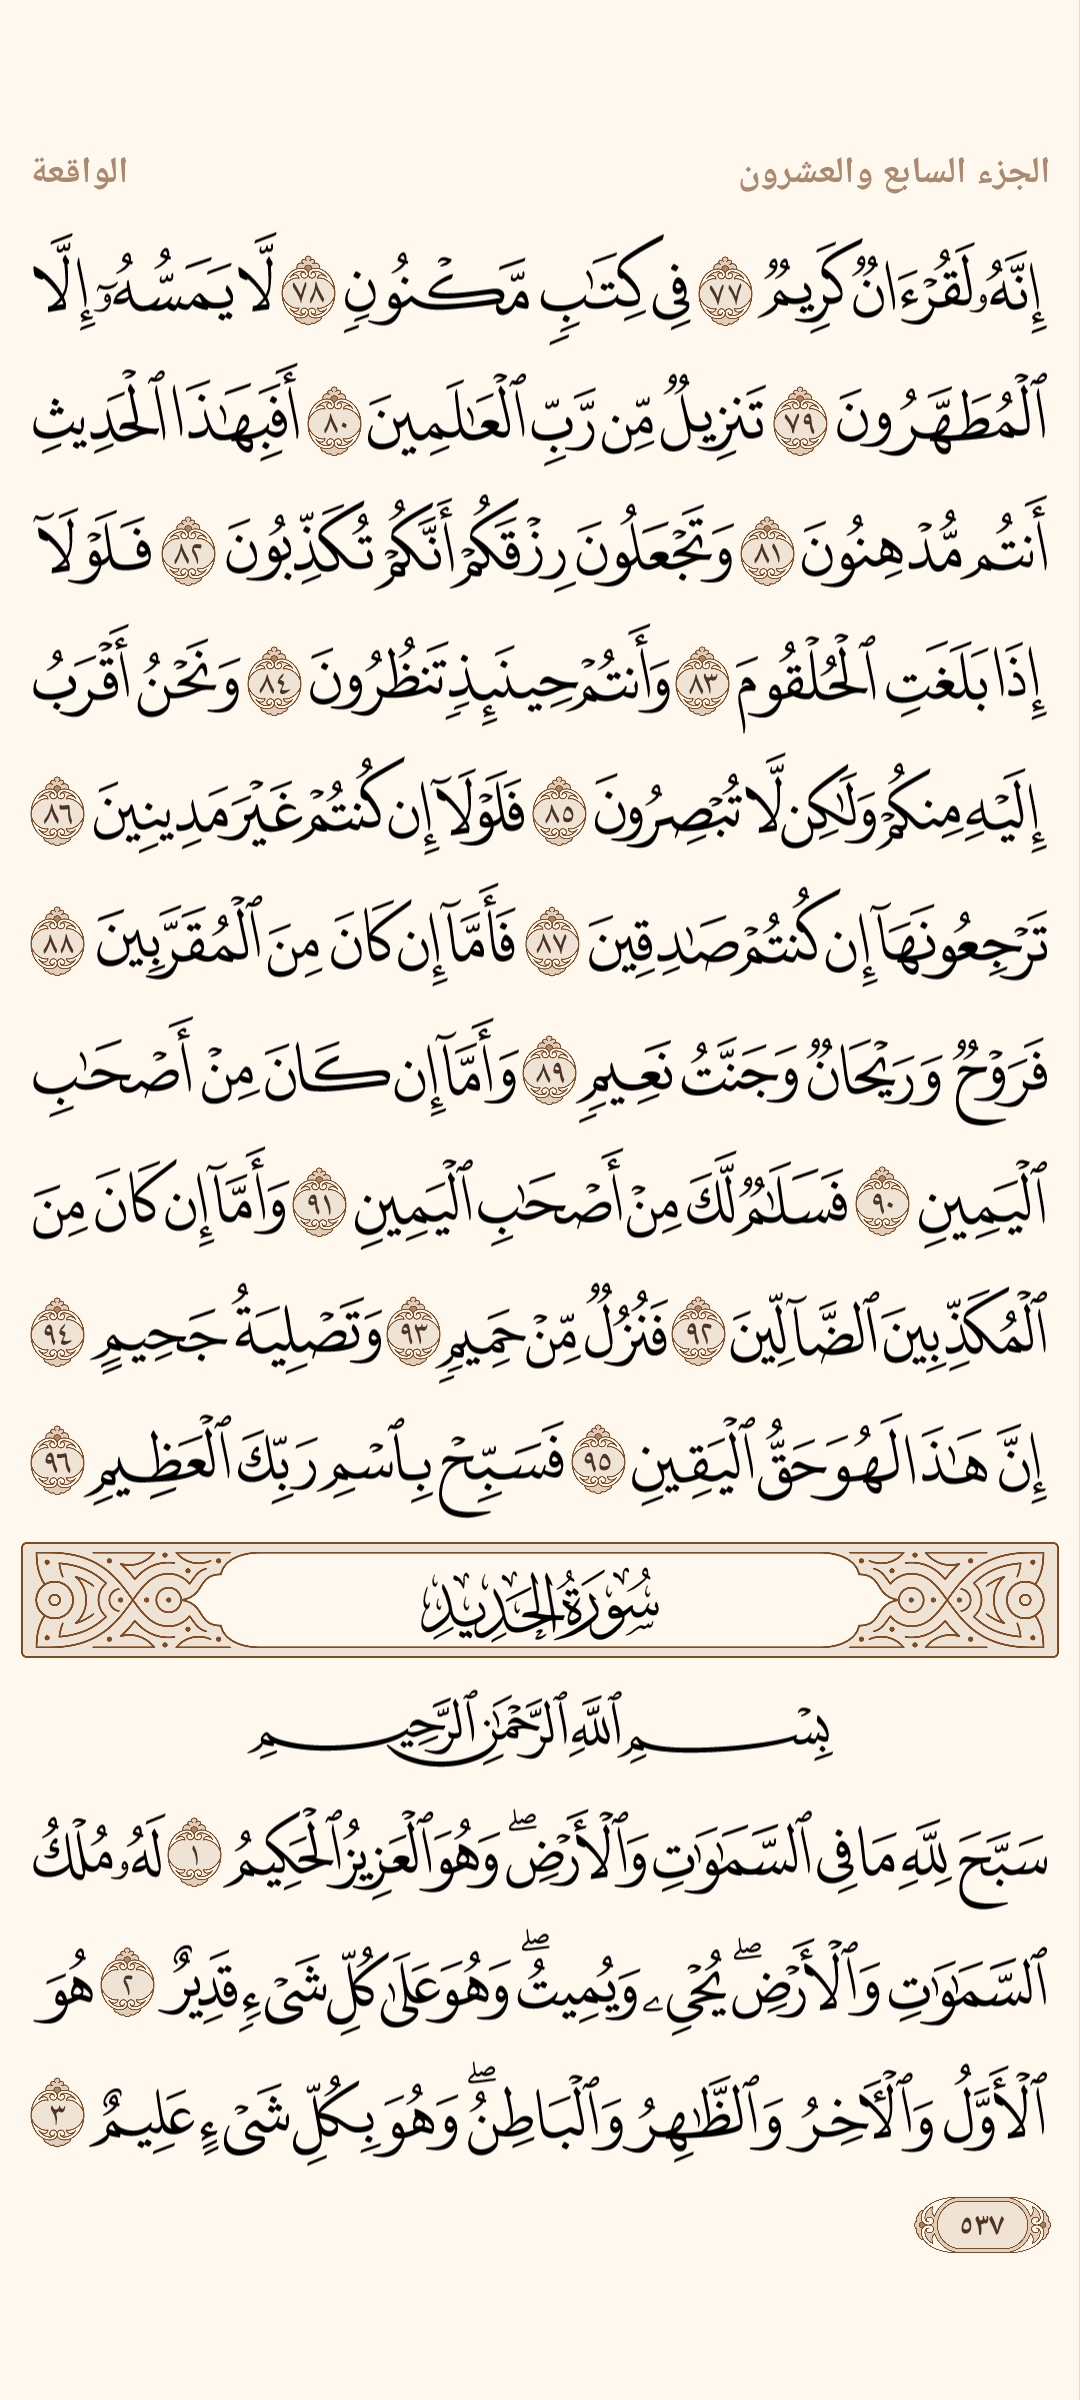 الجزء السابع والعشرون
الواقعة
إِنَّهُۥ لَقُرۡءَانٞ كَرِيمٞ ٧٧ فِي كِتَٰبٖ مَّكۡنُونٖ ٧٨ لَّا يَمَسُّهُۥٓ إِلَّا
ٱلۡمُطَهَّرُونَ ٧٩ تَنزِيلٞ مِّن رَّبِّ ٱلۡعَٰلَمِينَ ٨٠ أَفَبِهَٰذَا ٱلۡحَدِيثِ
أَنتُم مُّدۡهِنُونَ ٨١ وَتَجۡعَلُونَ رِزۡقَكُمۡ أَنَّكُمۡ تُكَذِّبُونَ ٨٢ فَلَوۡلَآ
إِذَا بَلَغَتِ ٱلۡحُلۡقُومَ ٨٣ وَأَنتُمۡ حِينَئِذٖ تَنظُرُونَ ٨٤ وَنَحۡنُ أَقۡرَبُ
إِلَيۡهِ مِنكُمۡ وَلَٰكِن لَّا تُبۡصِرُونَ ٨٥ فَلَوۡلَآ إِن كُنتُمۡ غَيۡرَ مَدِينِينَ ٨٦
تَرۡجِعُونَهَآ إِن كُنتُمۡ صَٰدِقِينَ ٨٧ فَأَمَّآ إِن كَانَ مِنَ ٱلۡمُقَرَّبِينَ ٨٨
فَرَوۡحٞ وَرَيۡحَانٞ وَجَنَّتُ نَعِيمٖ ٨٩ وَأَمَّآ إِن كَانَ مِنۡ أَصۡحَٰبِ
ٱلۡيَمِينِ ٩٠ فَسَلَٰمٞ لَّكَ مِنۡ أَصۡحَٰبِ ٱلۡيَمِينِ ٩١ وَأَمَّآ إِن كَانَ مِنَ
ٱلۡمُكَذِّبِينَ ٱلضَّآلِّينَ ٩٢ فَنُزُلٞ مِّنۡ حَمِيمٖ ٩٣ وَتَصۡلِيَةُ جَحِيمٍ ٩٤
إِنَّ هَٰذَا لَهُوَ حَقُّ ٱلۡيَقِينِ ٩٥ فَسَبِّحۡ بِٱسۡمِ رَبِّكَ ٱلۡعَظِيمِ ٩٦
سُورَةُ الحَدِيدِ
بِسۡمِ ٱللَّهِ ٱلرَّحۡمَٰنِ ٱلرَّحِيمِ
سَبَّحَ لِلَّهِ مَا فِي ٱلسَّمَٰوَٰتِ وَٱلۡأَرۡضِۖ وَهُوَ ٱلۡعَزِيزُ ٱلۡحَكِيمُ ١ لَهُۥ مُلۡكُ
ٱلسَّمَٰوَٰتِ وَٱلۡأَرۡضِۖ يُحۡيِۦ وَيُمِيتُۖ وَهُوَ عَلَىٰ كُلِّ شَيۡءٖ قَدِيرٌ ٢ هُوَ
ٱلۡأَوَّلُ وَٱلۡأٓخِرُ وَٱلظَّٰهِرُ وَٱلۡبَاطِنُۖ وَهُوَ بِكُلِّ شَيۡءٍ عَلِيمٌ ٣
٥٣٧